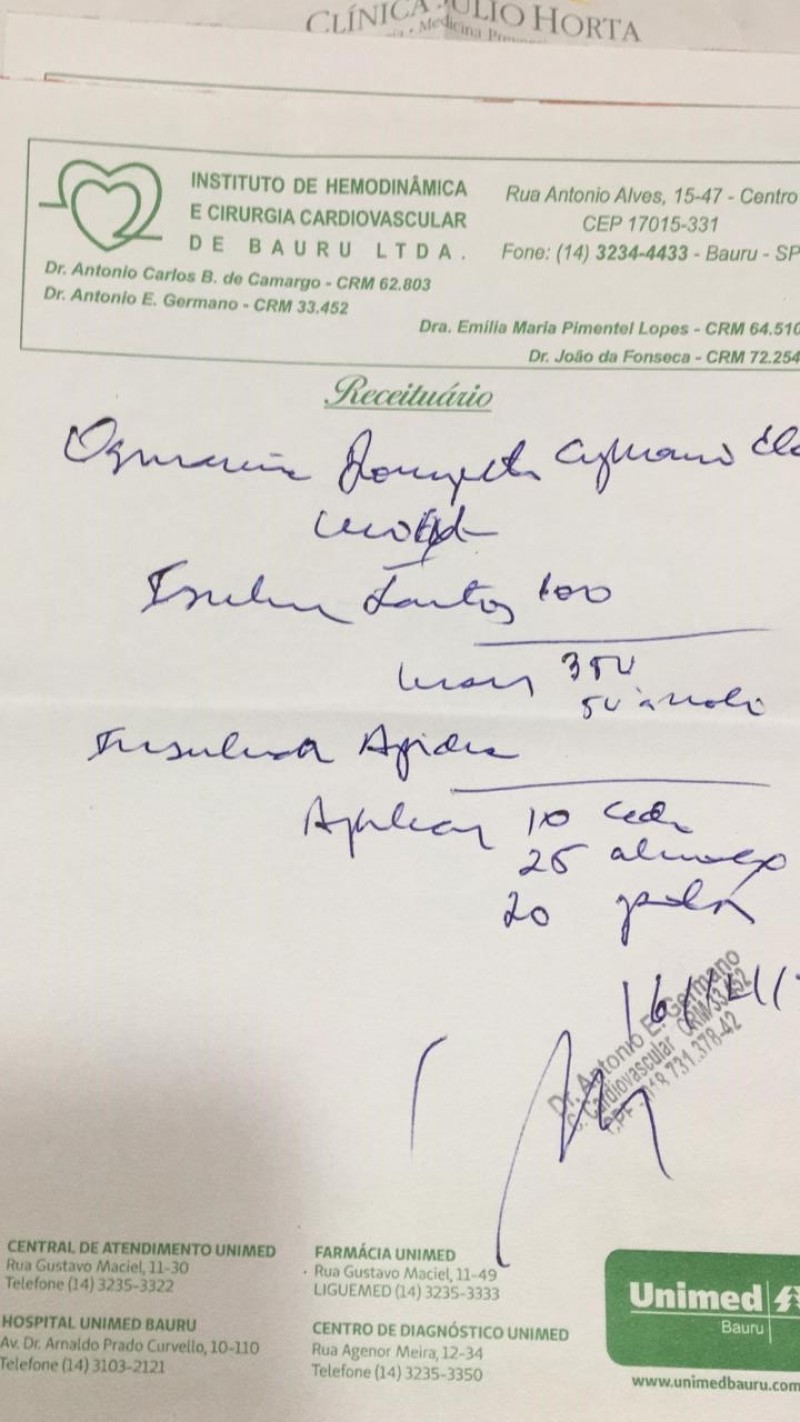 CLÍNICA JULIO HORTA
Medicina
INSTITUTO DE HEMODINÂMICA
E CIRURGIA CARDIOVASCULAR
DE BAURU LTDA.
Rua Antonio Alves, 15-47 - Centro
CEP 17015-331
Fone: (14) 3234-4433 - Bauru - SP
Dr. Antonio Carlos B. de Camargo - CRM 62.803
Dr. Antonio E. Germano - CRM 33.452
Dra. Emília Maria Pimentel Lopes - CRM 64.510
Dr. João da Fonseca - CRM 72.254
Receituário
Insulina Lantos 100
35U
5U à noite
Insulina Apidra
Aplicar 10 cedo
25 almoço
20 jantar
16/12/1
Dr. Antonio E. Germano
C. Cardiovascular CRM 33.452
CPF 018.731.378-42
CENTRAL DE ATENDIMENTO UNIMED
Rua Gustavo Maciel, 11-30
Telefone (14) 3235-3322
FARMÁCIA UNIMED
Rua Gustavo Maciel, 11-49
LIGUEMED (14) 3235-3333
HOSPITAL UNIMED BAURU
Av. Dr. Arnaldo Prado Curvello, 10-110
Telefone (14) 3103-2121
CENTRO DE DIAGNÓSTICO UNIMED
Rua Agenor Meira, 12-34
Telefone (14) 3235-3350
Unimed
Bauru
www.unimedbauru.com